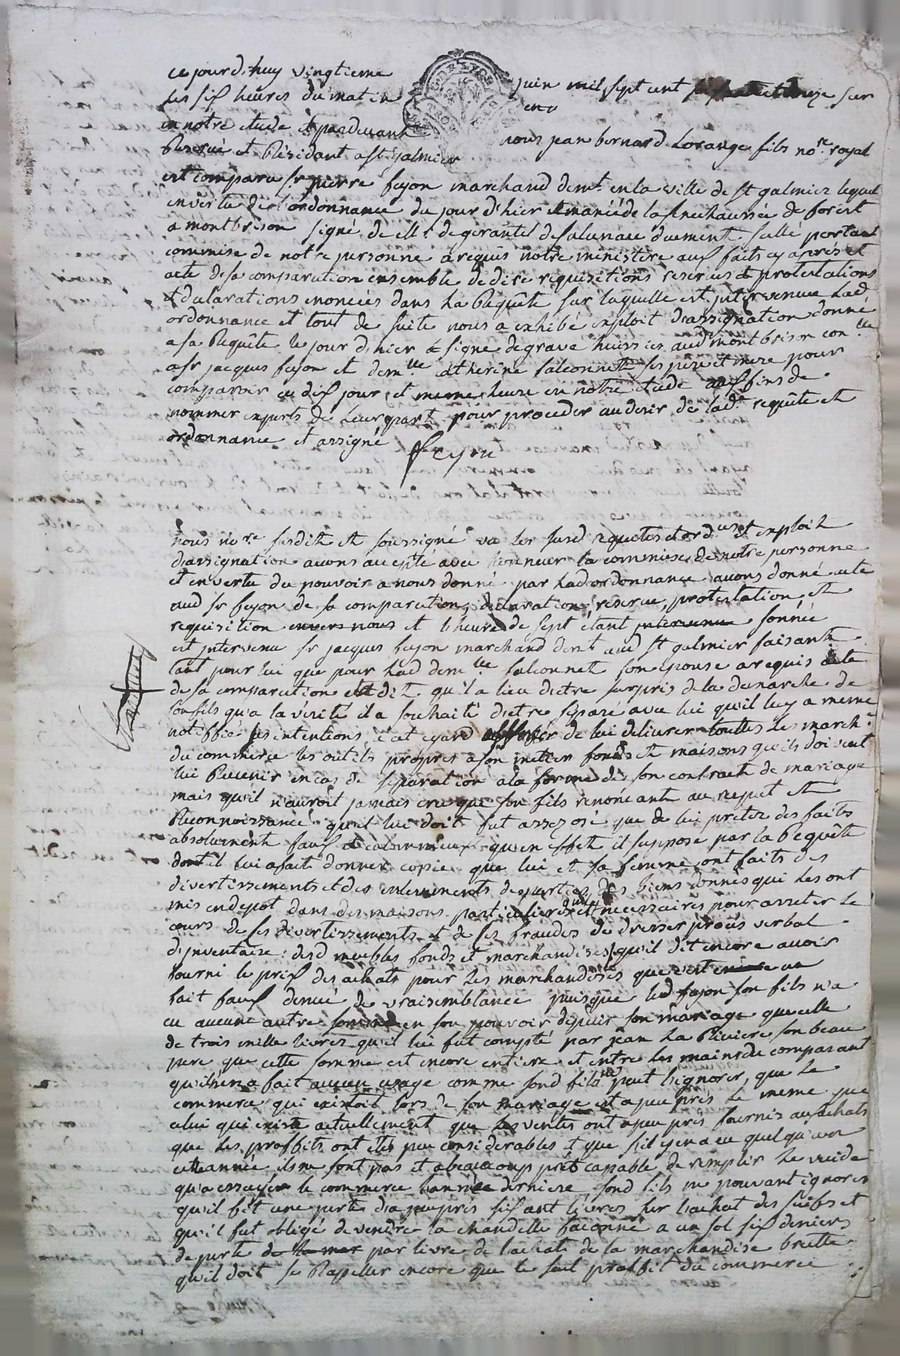 ce jourd'huy vingtieme juin mil sept cent soixante et onze sur
les six heures du matin
en notre etude et pardevant nous jean bernard Lorange fils no.re royal
Reservé et Résidant a St galmier
est comparu sr pierre feyon marchand demt. en la ville de St galmier lequel
en vertu de l'ordonnance du jour d'hier émanée de la senechaussée de forest
a montbrison signé de duement scellé portant
commise de notre personne a requis notre ministere aux faits cy après et
acte de sa comparution ensemble de dire requisitions reserves et protestations
et declarations enoncées dans la Requête sur laquelle est intervenue lad.
ordonnance et tout de suite nous a exhibé exploit d'assignation donné
a sa Requête le jour d'hier et signé degrava huissier aud montbrison con.lle
a sr jacques feyon et dem.lle catherine falconnet ses pere et mere pour
comparoir ce dis jour et meme heure en notre etude aux fins de
nommer experts de leur part pour proceder au desir de lad. requête et
ordonnance et a signé
feyon
nous no.re susdit et soussigné vu les susd requetes et ord.ces et exploit
d'assignation avons accepté avec honneur la commise de notre personne
et en vertu du pouvoir a nous donné par lad ordonnance avons donné acte
aud sr feyon de sa comparution, declaration, reserve, protestation et
requisition envers nous et l'heure de sept étant intervenue sonnée
est intervenu sr jacques feyon marchand demt aud St galmier faisant
tant pour lui que pour lad dem.lle falconnet son epouse a requis acte
de sa comparution et dit qu'il a lieu d'etre surpris de la demarche de
son fils qu'a la verité il a souhaité d'etre separé avec lui qu'il luy a meme
notiffié ses intentions a cet egard offrir de lui delivrer toutes les march.
du commerce les outils propres a son metier fonds et maisons qu'ils doivent
lui Revenir en cas de separation a la forme de son contract de mariage
mais qu'il n'auroit jamais cru que son fils renoncant au respect et
Reconnoissance qu'il luy doit fut assez osé que de lui preter des faits
absolument faux et calomnieux qu'en effet il suppose par la Requête
dont il lui a fait donner copie que lui et sa femme ont faits des
divertissements et des enlevements de parties des biens donnés qui les ont
mis en depot dans des maisons particulieres et necessaires pour arreter le
cours de ses divertissements et de ses fraudes de dresser procès verbal
d'inventaire desd meubles fonds et marchandises qu'il dit encore avoir
fourni le prix des achats pour les marchandises que c'est un
fait faux denué de vraisemblance puisque led fayon son fils n'a
eu aucune autre somme en son pouvoir depuis son mariage que celle
de trois mille livres qu'il lui fut compté par jean la Riviere son beau
pere que cette somme est encore entiere et entre les mains du comparant
qu'il n'en a fait aucun usage comme sond fils ne peut l'ignorer, que le
commerce qui existoit lors de son mariage est a peu près le meme que
celui qui existe actuellement que les ventes ont a peu près fournis aux achats
que les proffits ont étés peu considerables et que s'il y en a eu quelqu'un
cette année ils ne sont pas et a beaucoup près capable de remplir le vuide
qu'a essuyé le commerce l'année derniere sond fils ne pouvant ignorer
qu'il fit une perte d'a peu près six cent livres sur l'achat des suifs et
qu'il fut obligé de vendre la chandelle façonné a un sol six deniers
de perte par livre de l'achat de la marchandise brutte
qu'il doit se Rappeller encore que le seul proffit du commerce